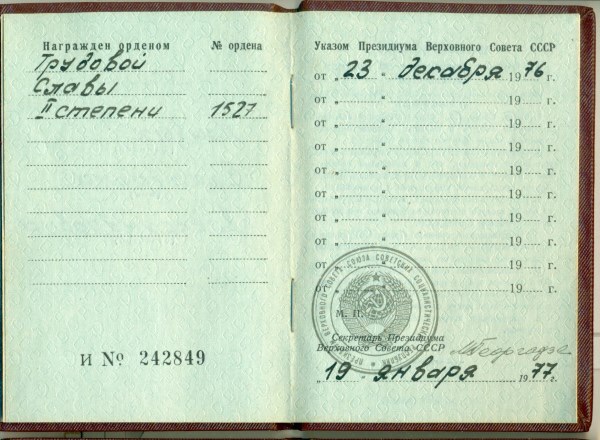 Награжден орденом № ордена
Трудовой
Славы
II степени 1527
И № 242849
Указом Президиума Верховного Совета СССР
от „ 23 “ декабря 1976 г.
от „ “ 19 г.
от „ “ 19 г.
от „ “ 19 г.
от „ “ 19 г.
от „ “ 19 г.
от „ “ 19 г.
от „ “ 19 г.
от „ “ 19 г.
от „ “ 19 г.
М. П.
Секретарь Президиума
Верховного Совета СССР
МГеоргадзе
„ 19 “ января 1977 г.
ПРЕЗИДИУМ ВЕРХОВНОГО СОВЕТА СОЮЗА СОВЕТСКИХ СОЦИАЛИСТИЧЕСКИХ РЕСПУБЛИК